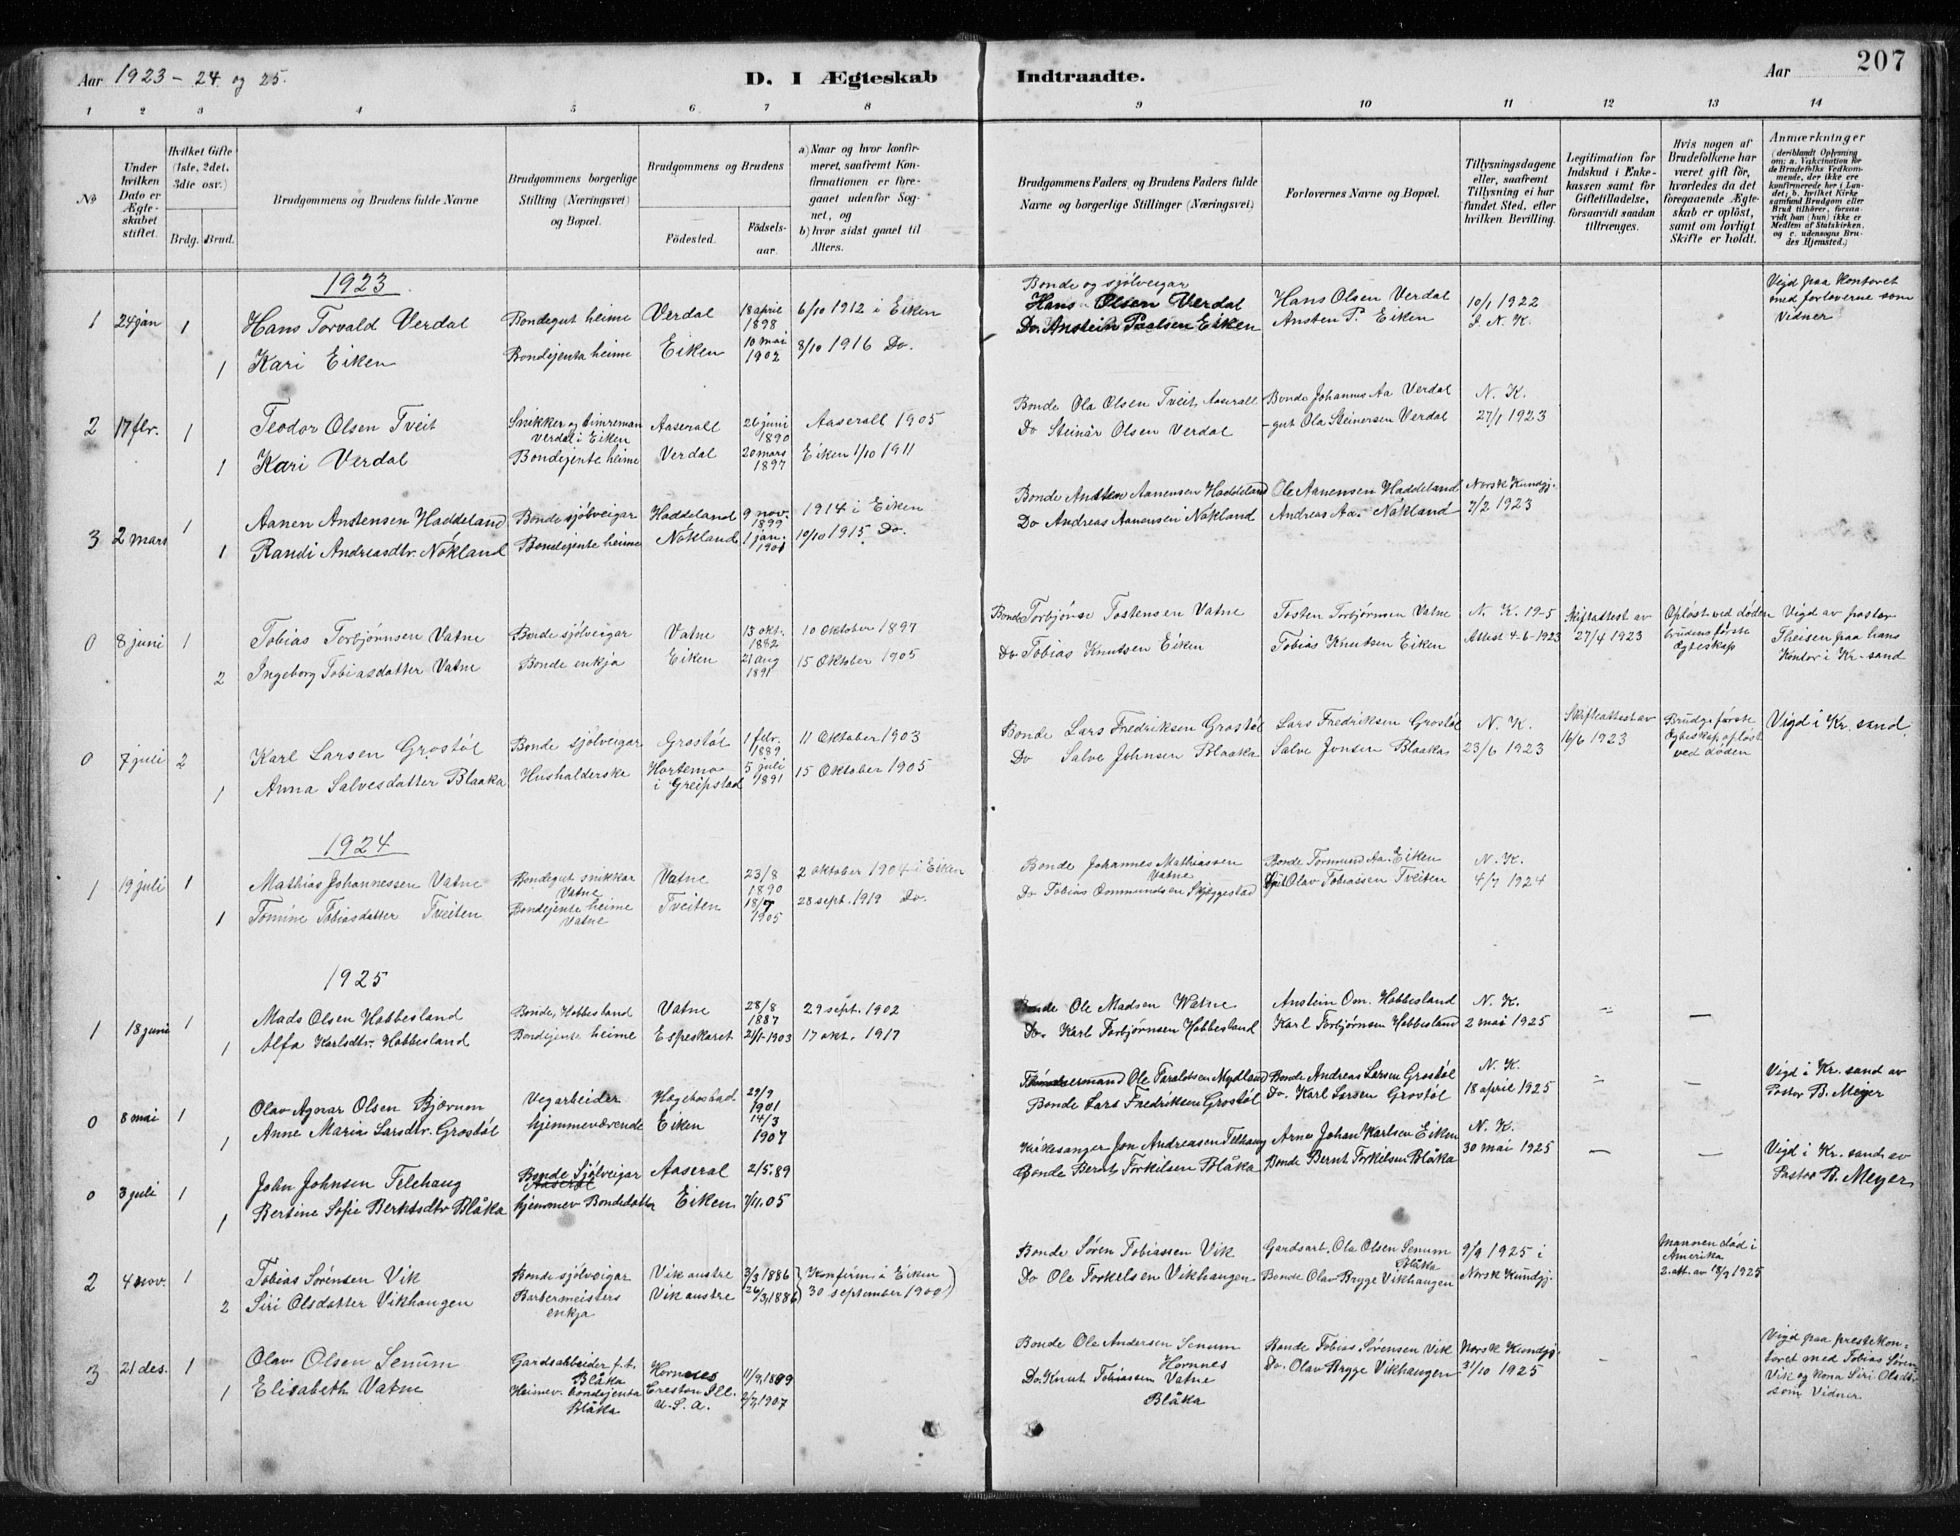 Aar 1923 – 24 og 25.
D. I Ægteskab Indtraadte.
Aar
207
1 2 3 4 5 6 7 8 9 10 11 12 13 14
No
Under hvilken Dato er Ægteskabet stiftet.
Hvilket Gifte (1ste, 2det, 3die osv.)
Brdg. Brud.
Brudgommens og Brudens fulde Navne
Brudgommens borgerlige Stilling (Næringsvei) og Bopæl.
Brudgommens og Brudens
Fødested. Fødselsaar.
a) Naar og hvor konfirmeret, saafremt Konfirmationen er foregaaet udenfor Sognet, og
b) hvor sidst gaaet til Alters.
Brudgommens Faders og Brudens Faders fulde Navne og borgerlige Stillinger (Næringsvei)
Forlovernes Navne og Bopæl.
Tillysningsdagene eller, saafremt Tillysning ei har fundet Sted, efter hvilken Bevilling.
Legitimation for Indskud i Enkekassen samt for Giftetilladelse, forsaavidt saadan tiltrænges.
Hvis nogen af Brudefolkene har været gift før, hvorledes da det foregaaende Ægteskab er opløst, samt om lovligt Skifte er holdt.
Anmærkninger (deriblandt Oplysning om: a. Vakcination for de Brudefolks Vedkommende, der ikke ere konfirmerede her i Landet; b. hvilket Kirkesamfund Brudgom eller Brud tilhører, forsaavidt han (hun) ikke er Medlem af Statskirken, og c. udensogns Brudes Hjemsted.)
1923
1 24 jan 1 Hans Torvald Verdal Bondegut heime Verdal 18 april 1898 6/10 1912 i Eiken Bonde og sjølveigar Hans Olsen Verdal Hans Olsen Verdal 10/1 1922 Vigd paa kontoret med forloverne som Vidner
1 Kari Eiken Bondejenta heime Eiken 10 mai 1902 8/10 1916 Do. Do. Anstein Paalsen Eiken Ansten P. Eiken I N. K.
2 17 febr. 1 Teodor Olsen Tveit Snikker og timreman Verdal i Eiken Aaserall 26 juni 1890 Aaserall 1905 Bonde Ola Olsen Tveit, Aaserall Bonde Johannes Aa Verdal N. K.
1 Kari Verdal Bondejente heime Verdal 20 mars 1897 Eiken 1/10 1911 Do Steinar Olsen Verdal gut Ola Steinersen Verdal 27/1 1923
3 2 mars 1 Aanen Anstensen Haddeland Bonde sjølveigar Haddeland 9 nov. 1899 1914 i Eiken Bonde Ansten Aanensen Haddeland Ole Aanensen Haddeland Norsk Kundgj.
1 Randi Andreasdtr. Nökland Bondejente heime Nökland 1 jan. 1901 10/10 1915 Do. Do Andreas Aanensen Nökland Andreas Aa. Nökland 7/2 1923
0 8 juni 1 Tobias Torbjørnsen Vatne Bonde sjölveigar Vatne 13 okt. 1882 10 Oktober 1897 Bonde Torbjørn Tostensen Vatne Tosten Torbjørnsen Vatne N. K. 19-5 Skifteattest av 27/4 1923 Opløst ved døden brudens første Ægteskap Vigd av pastor Theisen paa hans Kontor i Kr-sand
2 Ingeborg Tobiasdatter Vatne Bonde enkja Eiken 21 aug 1891 15 Oktober 1905 Do Tobias Knutsen Eiken Tobias Knutsen Eiken Attest 4-6-1923
0 7 juli 2 Karl Larsen Grostøl Bonde sjölveigar Grostøl 1 febr. 1889 11 Oktober 1903 Bonde Lars Fredriksen Grostøl Lars Fredriksen Grostøl N. K. Skifteattest av 16/6 1923 Brudg. første Ægteskap opløst ved døden Vigd i Kr. sand.
1 Anna Salvesdatter Blaaka Husholderske Hortemo i Greipstad 5 juli 1891 15 Oktober 1905 Do Salve Johnsen Blaaka Salve Jonsen Blaaka 23/6 1923
1924
1 19 juli 1 Mathias Johannessen Vatne Bondegut snikkar Vatne Vatne 23/8 1890 2 oktober 1904 i Eiken Bonde Johannes Mathiassen Vatne Bonde Tormund Aa. Eiken N. K.
1 Tomine Tobiasdatter Tveiten Bondejente heime Vatne Tveiten 18/7 1905 28 sept. 1919 Do. Do Tobias Ommundsen Skjeggestad Gut Olav Tobiassen Tveiten 4/7 1924
1925
1 18 juni 1 Mads Olsen Hobbesland Bonde, Hobbesland Vatne 28/8 1887 29 sept. 1902 Bonde Ole Madsen Watne Anstein Om. Hobbesland N. K. — —
1 Alfa Karlsdtr. Hobbesland Bondejente heime Espeskaret 21/1-1903 17 okt. 1917 Do. Karl Torbjørnsen Hobbesland Karl Torbjørnsen Hobbesland 2 mai 1925
0 8 mai 1 Olav Agnar Olsen Bjærum Vegarbeider Hægebostad 29/9 1901 Tømmermand Ole Taraldsen Mydland Bonde Andreas Larsen Grostøl N. K. — — Vigd i Kr. sand av Pastor B. Meyer
1 Anne Maria Larsdtr. Grostøl hjemmeværende Eiken 14/3 1907 Bonde Lars Fredriksen Grostøl Do. Karl Larsen Grostøl 18 april 1925
0 3 juli 1 John Johnsen Telehaug Bonde Sjølveigar Aaseral Aaseral 2/5.89 Kirkesanger Jon Andreasen Telhaug Arne Johan Karlsen Eiken N. K. — — Vigd i Kr. sand av Pastor B. Meyer
1 Bertine Sofie Berntsdtr Blåka hjemmev Bondedatter Eiken 7/11.05 Bonde Bernt Torkilsen Blåka Bonde Bernt Torkilsen Blåka 30 mai 1925
2 4 nov. 1 Tobias Sørensen Vik Bonde sjølveigar Vik austre 3/3 1886 Konfirm. i Eiken Bonde Søren Tobiassen Vik Gardsarb. Ola Olsen Senum Blåka 9/9 1925 i Mannen død i Amerika 2. att. av 18/9 1925
2 Siri Olsdatter Vikhaugen Barbermeisters enkja Vik austre 26/3 1886 30 september 1900 Do Ole Torkelsen Vikhaugen Bonde Olav Brygge Vikhaugen Norsk Kundgj.
3 21 des. 1 Olav Olsen Senum Gardsarbeider f.t. Blåka Hornnes 11/9, 1899 Bonde Ole Andersen Senum Hornnes Bonde Tobias Sørensen Vik Norsk Kundgj. — — Vigd paa prestekontoret med Tobias Søren Vik og kona Siri Olsdt. som Vidner
1 Elisabeth Vatne Heimev. bondejenta Blåka Creston Ill. U.S.A. 2/7, 1907 Do. Knut Tobiassen Vatne Blåka Do. Olav Brygge Vikhaugen 31/10 1925